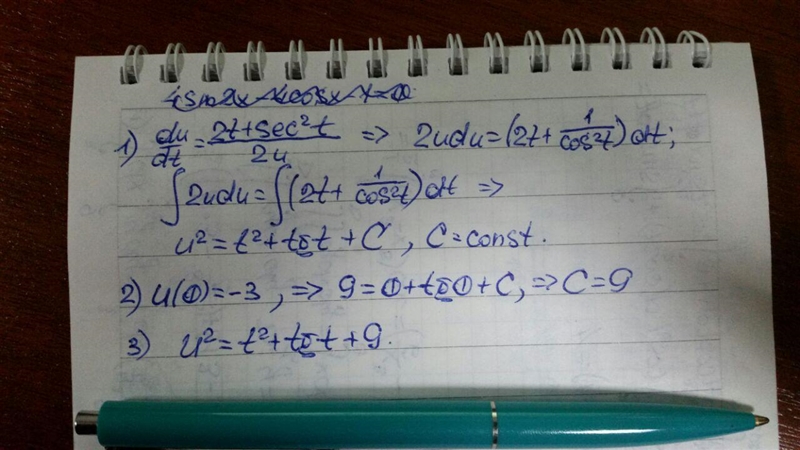 4sin2x-4cosx-1=0
1) du/dt = (2t+sec²t)/2u => 2udu=(2t+1/cos²t)dt;
∫2udu=∫(2t+1/cos²t)dt =>
u²=t²+tgt+C, C=const.
2) u(0)=-3, => 9=0+tg0+C, => C=9
3) u²=t²+tgt+9.